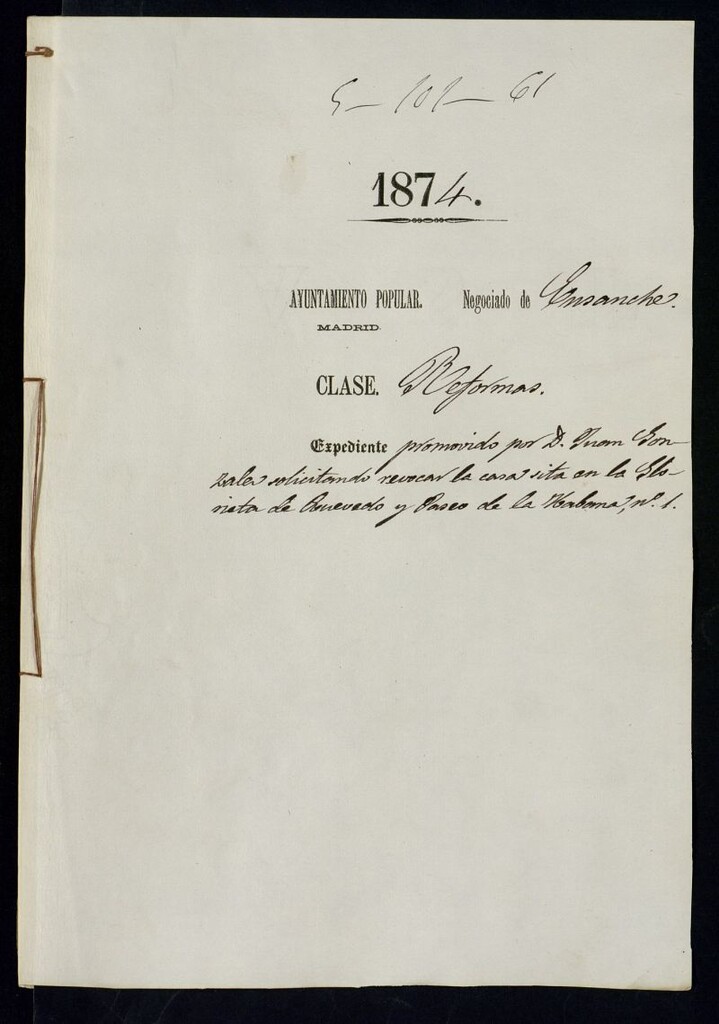 5-101-61
1874.
AYUNTAMIENTO POPULAR. Negociado de Ensanche.
MADRID.
CLASE. Reformas.
Expediente promovido por D. Juan Gon-
zalez solicitando revocar la casa sita en la Glo-
rieta de Quevedo y Paseo de la Habana, nº. 1.